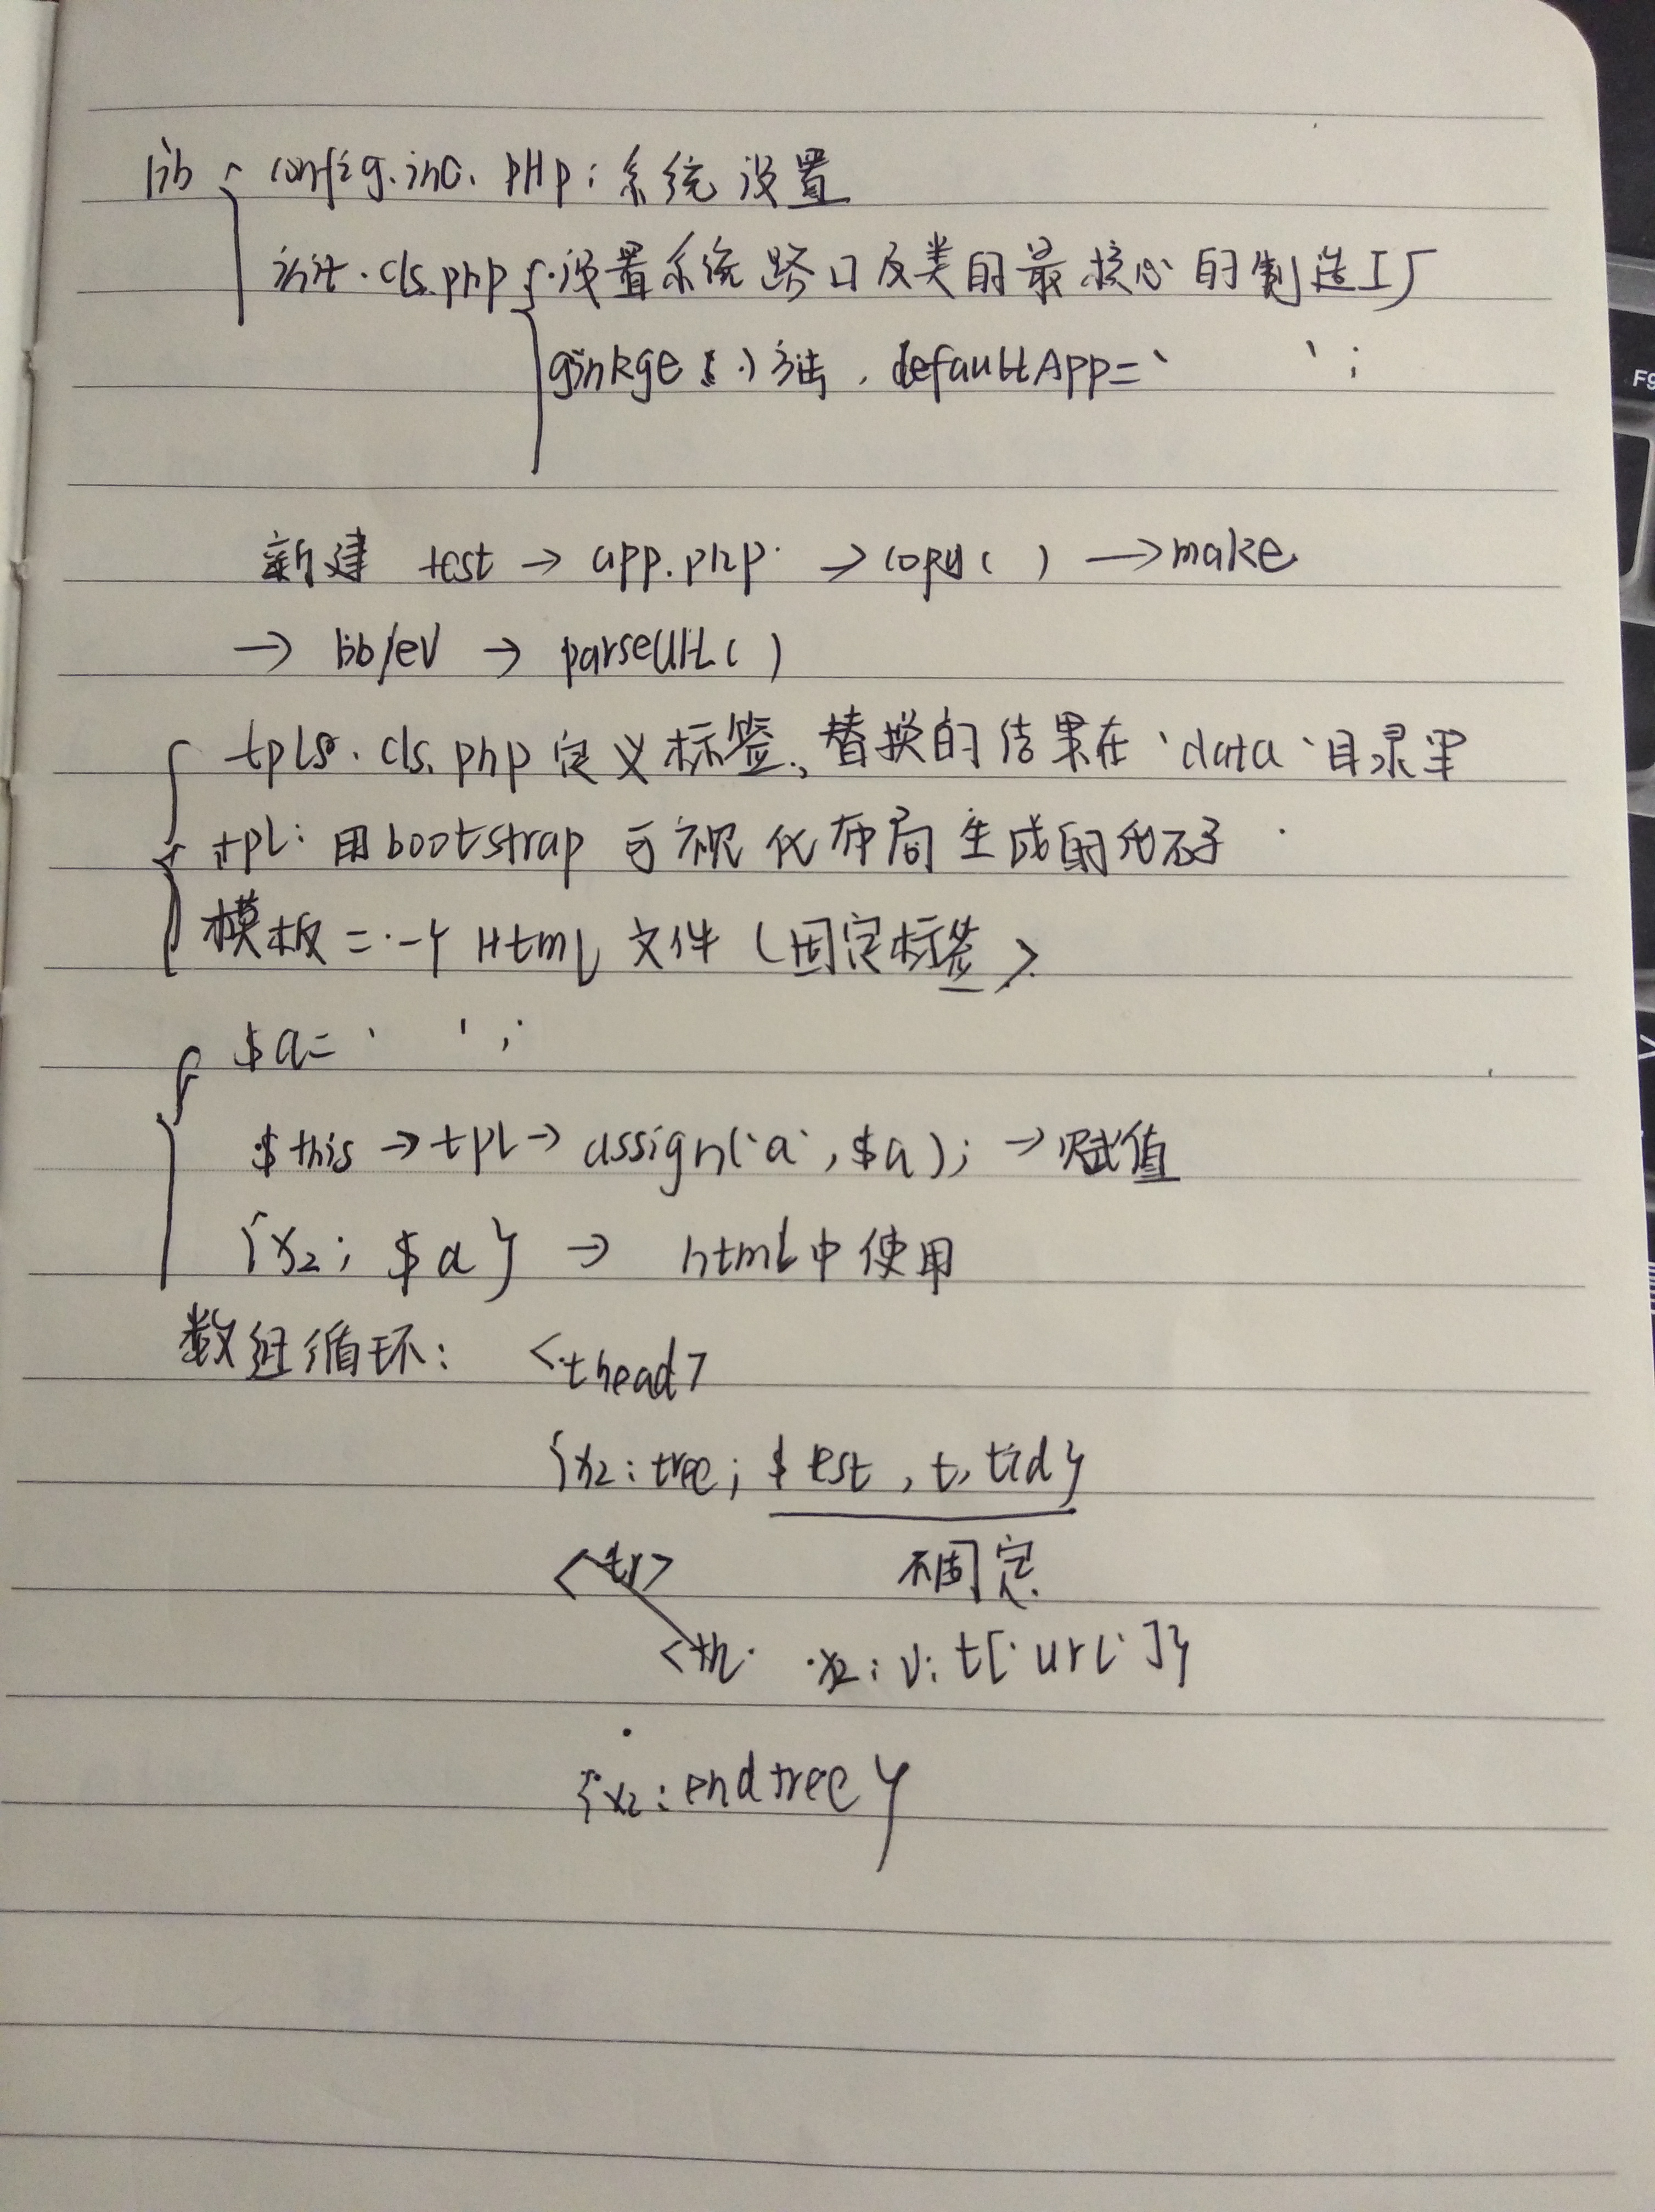 lib { config.inc.PHP: 系统设置
init.cls.php { 设置系统路口及类的最核心的制造工厂
ginkge () 方法, defaultApp=' ';
新建 test → app.php → copy( ) → make
→ lib/ev → parseUrl( )
tpls.cls.php 定义标签, 替换的结果在'data'目录里
tpl: 用bootstrap 可视化布局生成的代码
模板 = 一个 Html 文件 (固定标签)
$a= ' ';
$this → tpl → assign('a', $a); → 赋值
{x2; $a} → html中使用
数组循环: <thead>
{x2:tree; $test, t, tid}
<tr> 不固定
<th x2:v:t['url']}
{x2:endtree}
F9